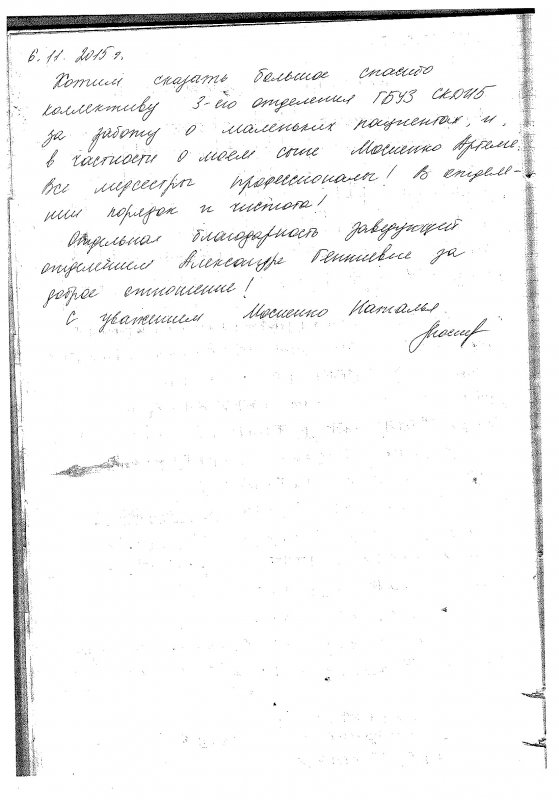 6. 11. 2015 г.
Хотим сказать большое спасибо
коллективу 3-его отделения ГБУЗ СКДИБ
за заботу о маленьких пациентах, и,
в частности о моем сыне Мосиенко Артеме.
Все медсестры профессионалы! В отделе-
нии порядок и чистота!
Отдельная благодарность заведующей
отделением Александре Генниевне за
доброе отношение!
С уважением Мосиенко Наталья